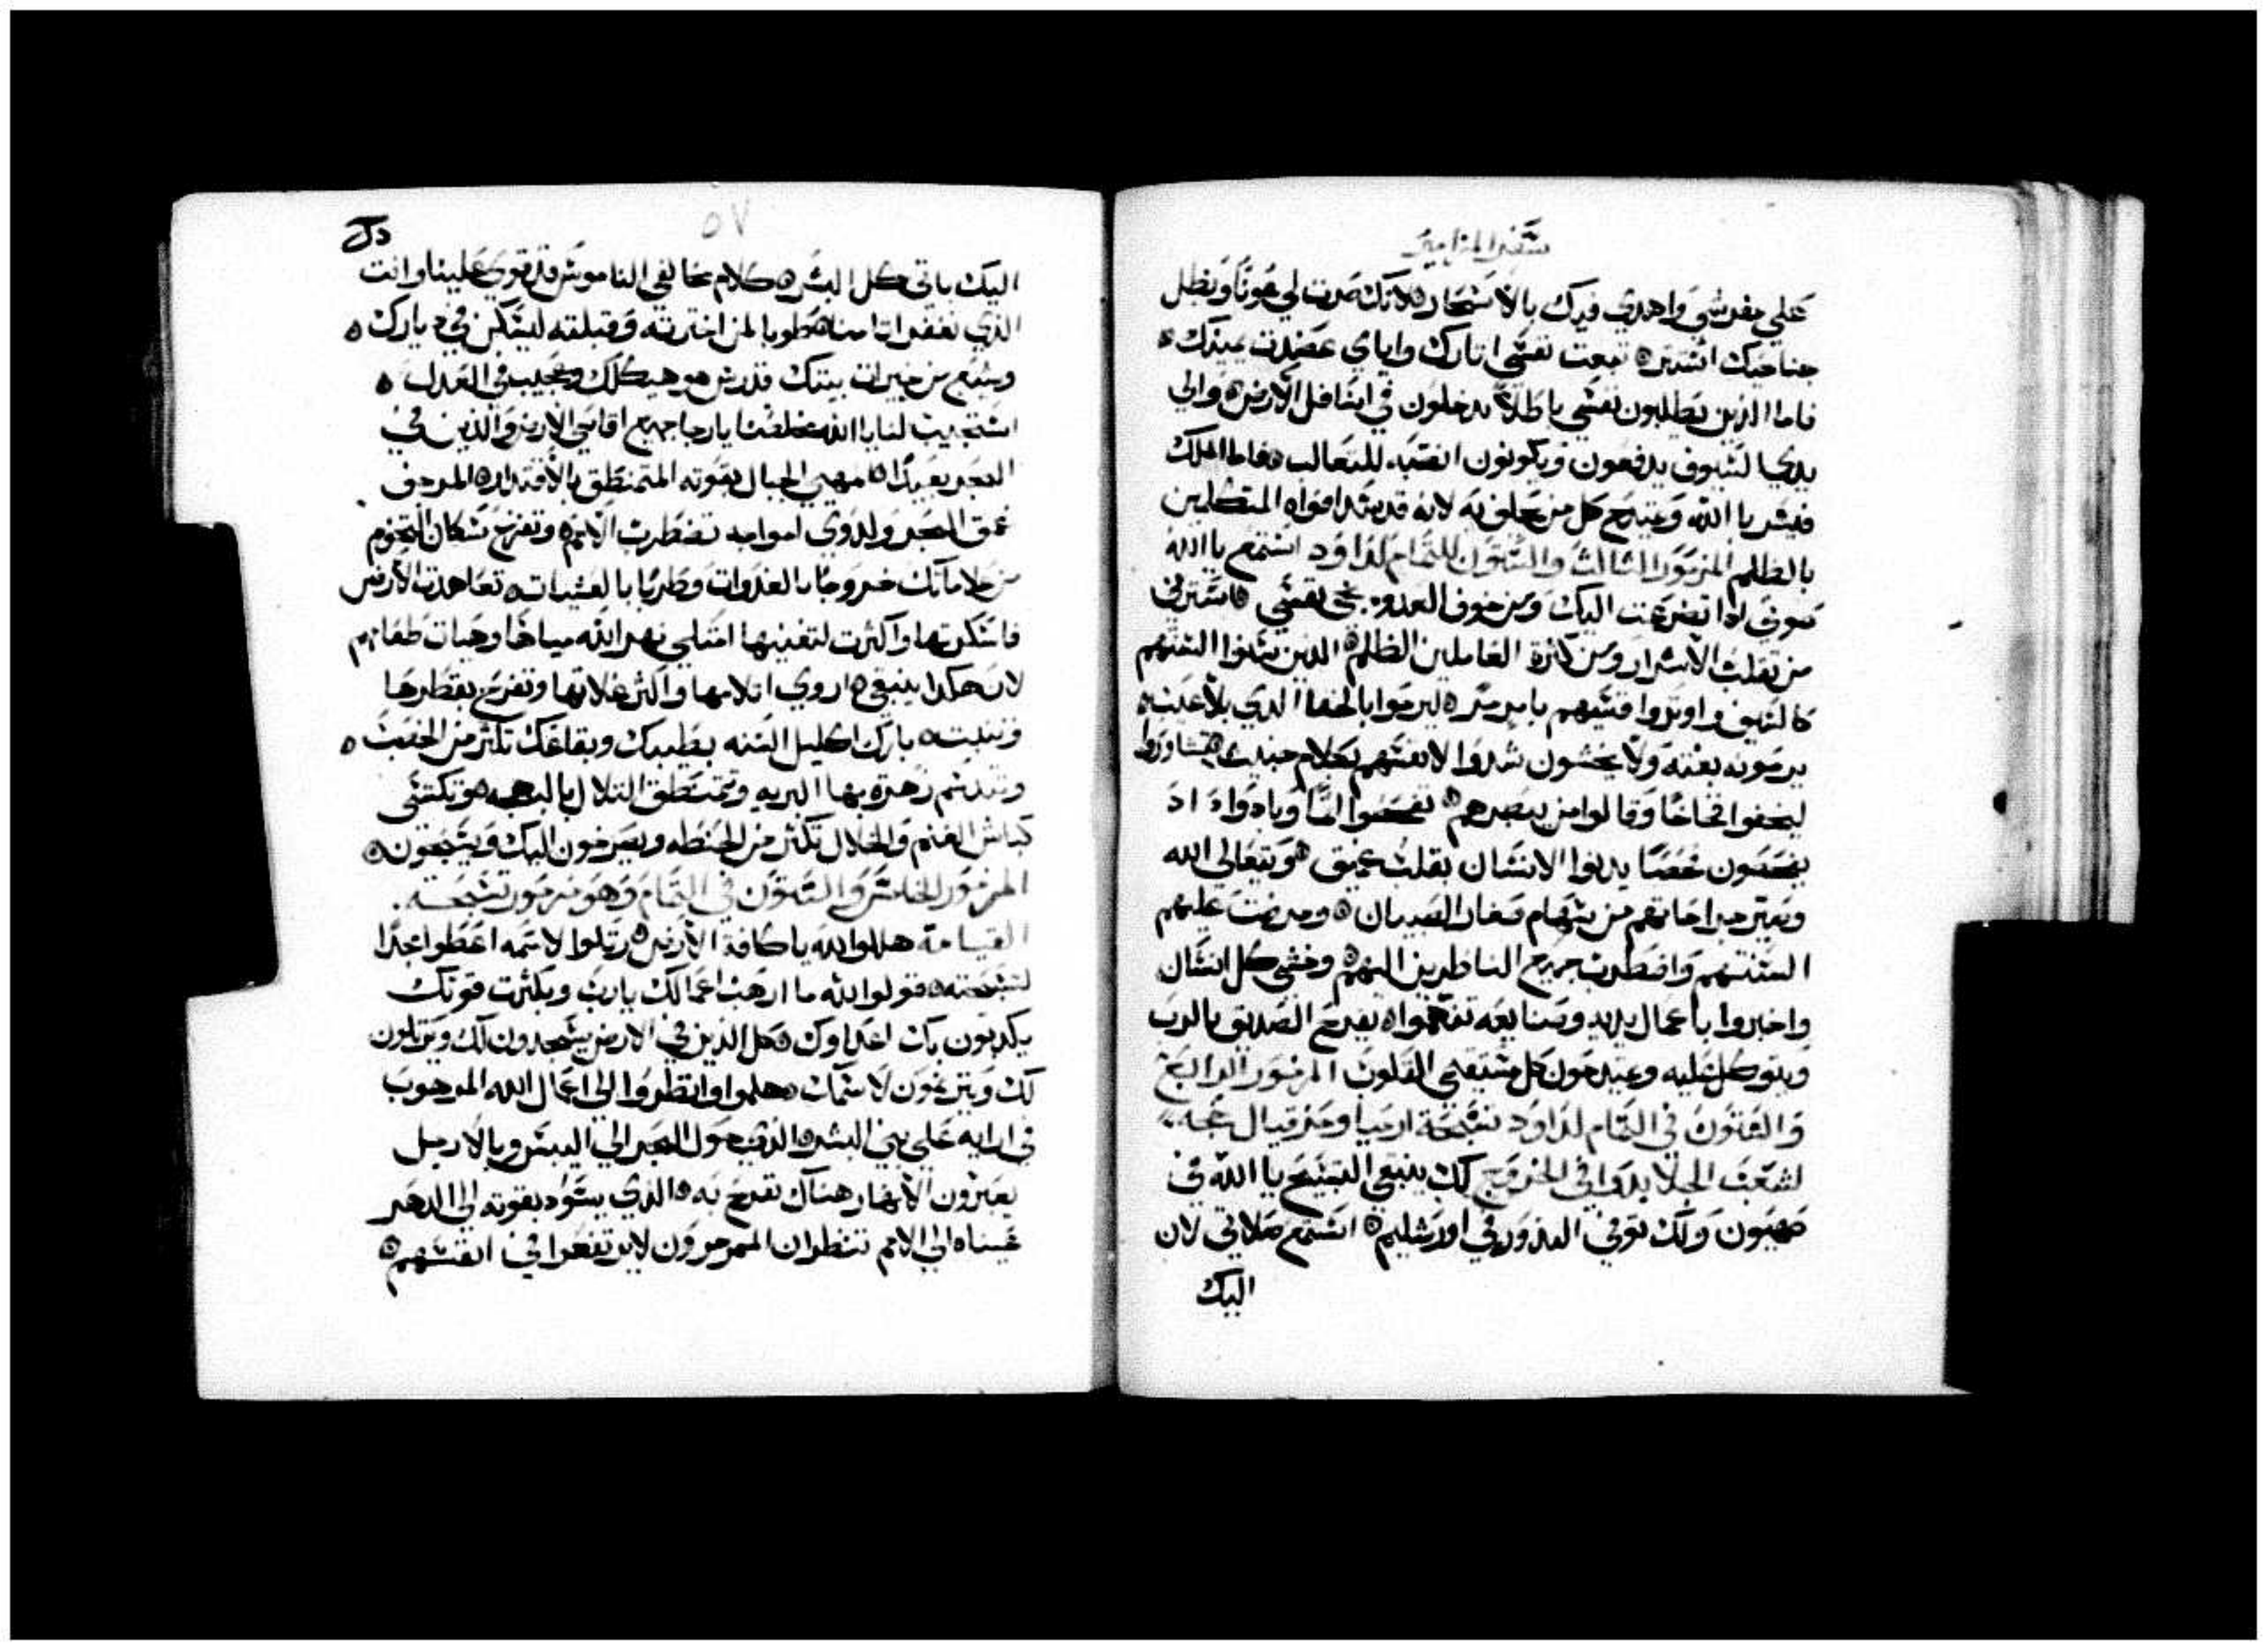 سفر المزامير
علي مفرشي واهدي فيك بالاسحار لانك صرت لي عونًا وبظل
جناحيك استتر تبعت نفسي اتارك واياي عضدت يمينك
فاما الذين يطلبون نفسي باطلاً يدخلون في اسافل الارض والي
يدي السيوف يدفعون ويكونون انصبه للثعالب فاما الملك
فيسر بالله ويمتدح كل من يحلف به لانه قد سد افواه المتكلمين
بالظلم المزمور الثالث والستون للتمام لداود استمع يا الله
صوتي اذا تضرعت اليك ومن خوف العدو نجي نفسي استرني
من تقلب الاشرار ومن كثرة العاملين الظلم الذين سنوا السنتهم
كالسيف واوتروا قسيهم بامر مر ليرموا بالخفا الذي بلا عيب
يرمونه بغتة ولا يخشون شددوا لانفسهم كلام خبيث تشاوروا
ليخفوا فخاخًا وقالوا من يبصرهم تفحصوا اثمًا وبادوا اد
يفحصون فحصًا يدنوا الانسان بقلب عميق ويتعالي الله
وتصير جراحاتهم من سهام صغار الصبيان ومرضت عليهم
السنتهم واضطرب جميع الناظرين اليهم وخشي كل انسان
واخبروا باعمال يديه وصنايعه تفهموا يفرح الصديق بالرب
ويتوكل عليه ويمتدحون كل مستقيمي القلوب المزمور الرابع
والستون في التمام لداود تسبحة ارميا وحزقيال
لشعب الجلا بدوا في الخروج لك ينبغي التسبيح يا الله في
صهيون ولك توفي النذور في اورشليم استمع صلاتي لان
اليك
٥٧
اليك ياتي كل البشر كلام مخالفي الناموس قد قوي علينا وانت
الذي تغفر اتامنا طوبا لمن اخترته وقبلته ليسكن في ديارك
وسنشبع من خيرات بيتك قدوس هو هيكلك وعجيب في العدل
استجيب لنا يا الله مخلصنا يا رجا جميع اقاصي الارض والذين في
البحر بعيدًا مهيي الجبال بقوته المتمنطق بالاقتدار المرجف
عمق البحر ولدوي امواجه تضطرب الامم وتفزع سكان التخوم
من علاماتك خروجًا بالغدوات وطربًا بالعشيات تعاهدت الارض
فاسكرتها واكثرت لتغنيها امتلي نهر الله مياهًا وهيات طعامهم
لان هكدا ينبغي اروي اتلامها واكثر غلاتها وتفرح بقطرها
وتنبت بارك اكليل السنه بطيبك وبقاعك تكثر من الخصب
وتندسم زهرة بها البريه وتتمنطق التلال بالبهجه وتكتسي
كباش الغنم والخلال تكثر من الحنطه ويصرخون اليك ويسبحون
المزمور الخامس والستون في التمام وهو مزمور تسبحة
القيامة هللوا لله يا كافة الارض رتلوا لاسمه اعطوا مجدًا
لتسبحته قولوا لله ما ارهب اعمالك يا رب وبكثرت قوتك
يكدبون بك اعداوك كل الذين في الارض يسجدون لك ويرتلون
لك ويترنمون لاسمك هلموا وانظروا الي اعمال الله المرهوب
في ارايه علي بني البشر الذي حول البحر الي اليبس وبالارجل
يعبرون الانهار هناك نفرح به الذي يسود بقوته الي الدهر
عيناه الي الامم تنظران الممرمرون لا يرتفعوا في انفسهم